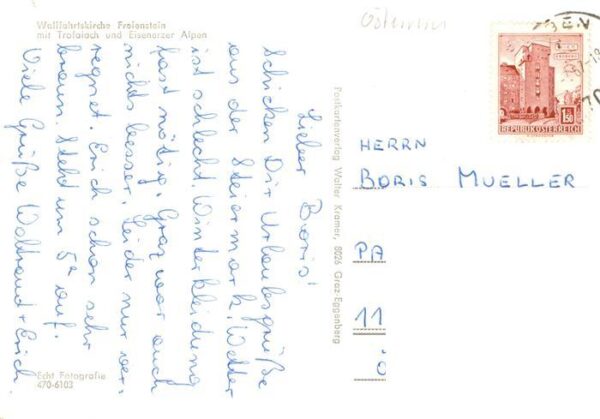 Wallfahrtskirche Freienstein
mit Trofaiach und Eisenerzer Alpen
Lieber Boris!
Schicken Dir Urlaubsgrüße
aus der Steiermark. Wetter
ist schlecht. Winterkleidung
fast nötig. Graz war auch
nichts besser, leider nur ver-
regnet. Erich schon sehr
braun. Steht um 5ʰ auf.
Viele Grüße Waltraud + Erich
Echt Fotografie
470-6103
Postkartenverlag Walter Kramer, 8026 Graz-Eggenberg
1.50
REPUBLIK ÖSTERREICH
HERRN
BORIS MUELLER
PA
11
Ö